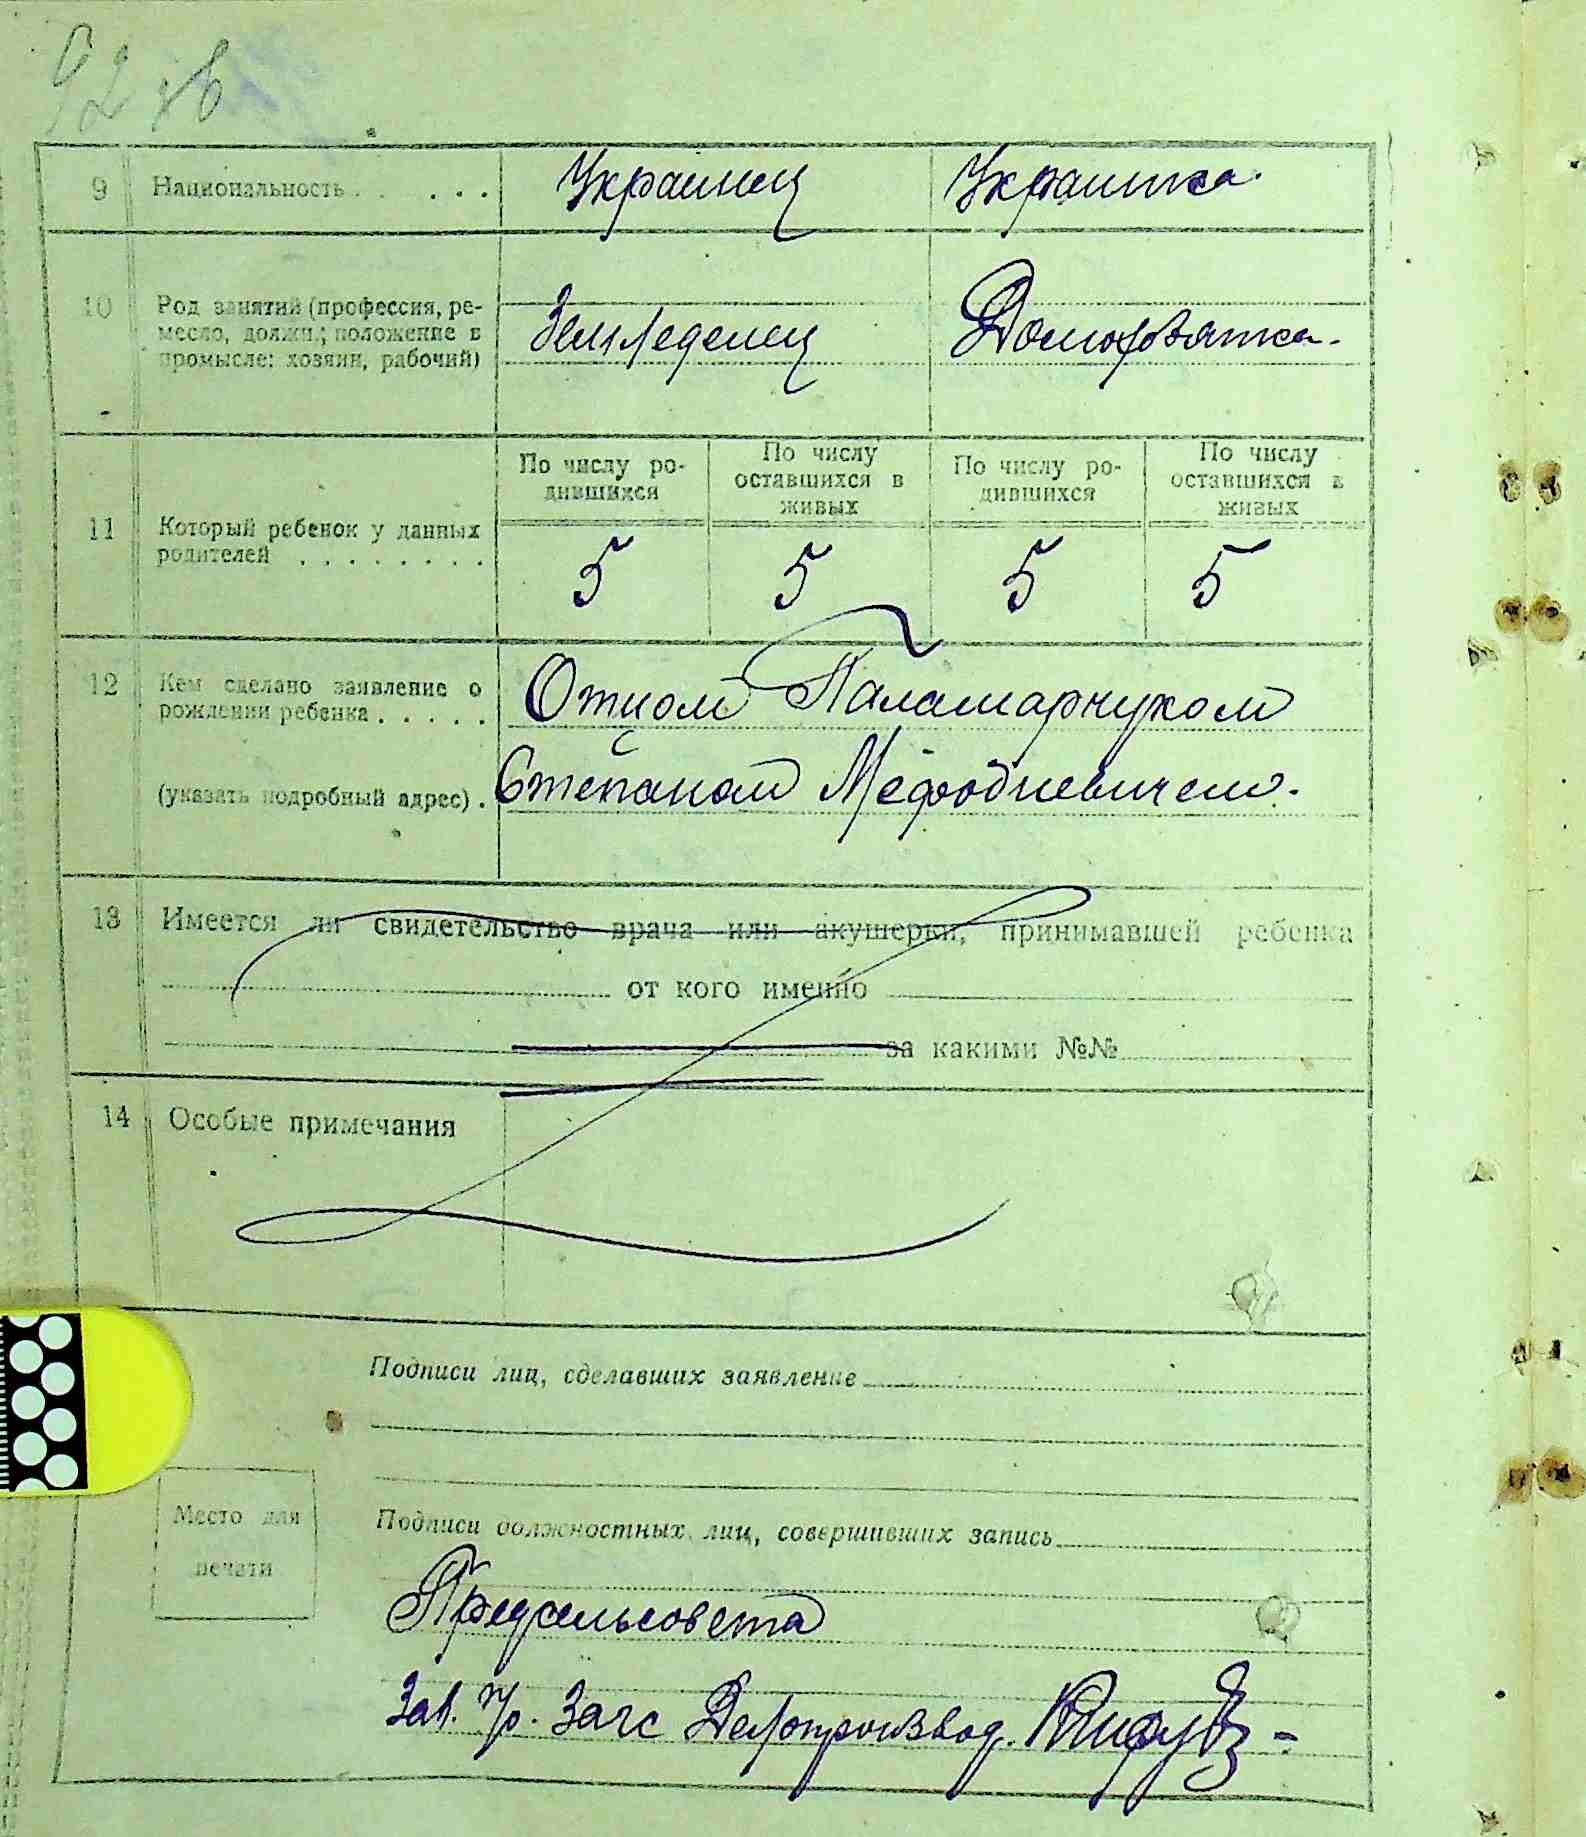 92 зв
9 Национальность . . . . . Украинец Украинка.
10 Род занятий (профессия, ре-
месло, должн.; положение в
промысле: хозяин, рабочий)
Земледелец Домохозяйка.
По числу ро-
дившихся
По числу
оставшихся в
живых
По числу ро-
дившихся
По числу
оставшихся в
живых
11 Который ребенок у данных
родителей . . . . . . . .
5 5 5 5
12 Кем сделано заявление о
рождении ребенка . . . . .
Отцом Паламарчуком
(указать подробный адрес) . Степаном Мефодиевичем.
13 Имеется ли свидетельство врача или акушерки, принимавшей ребенка
от кого именно
за какими №№
14 Особые примечания
Подписи лиц, сделавших заявление
Место для
печати
Подписи должностных лиц, совершивших запись
Предсельсовета
Зав. Загс Делопроизвод.